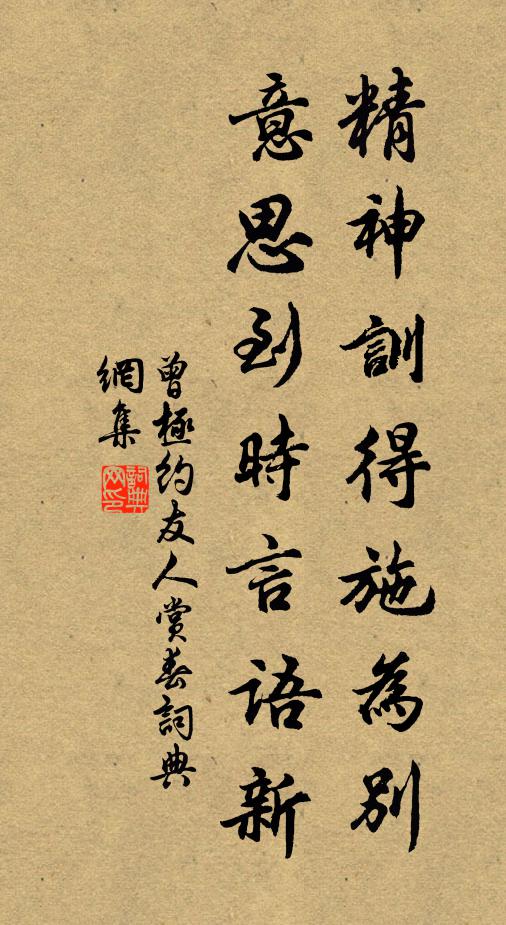 精神訓得施為別
意思到時言語新
曾極約友人賞春詞典
網集
詞典
网印